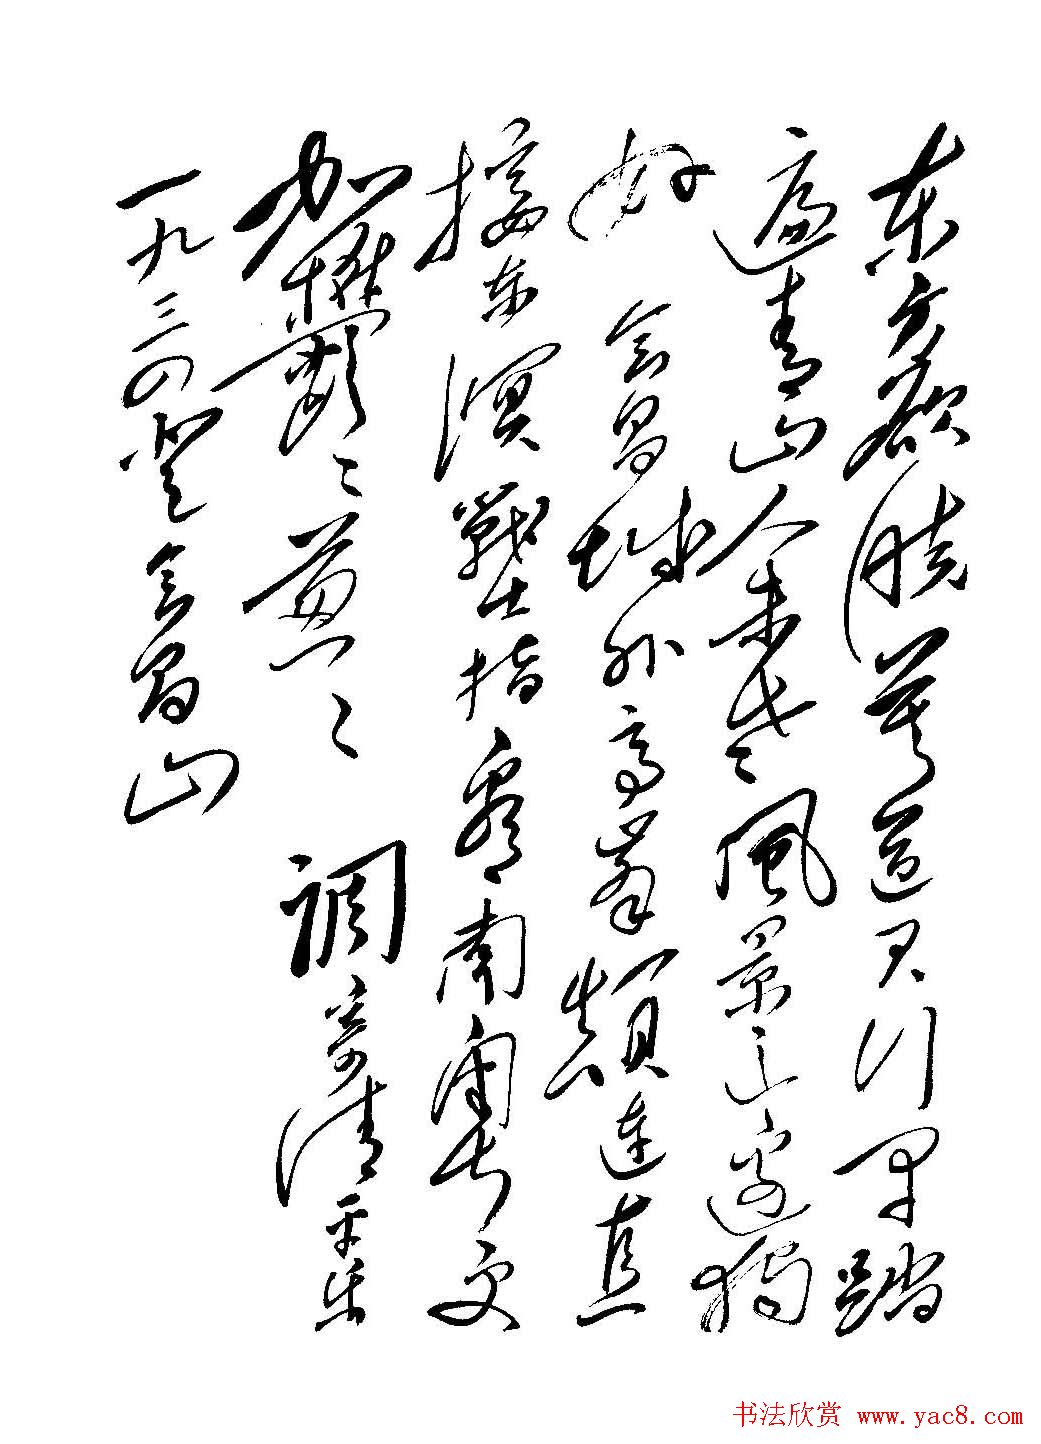 东方欲晓莫道君行早踏
遍青山人未老風景這邊獨
好 会昌城外高峯颠连直
接东溟戰士指看南粤更
加鬱〻葱〻 调寄清平乐
一九三四登会昌山
书法欣赏 www.yac8.com